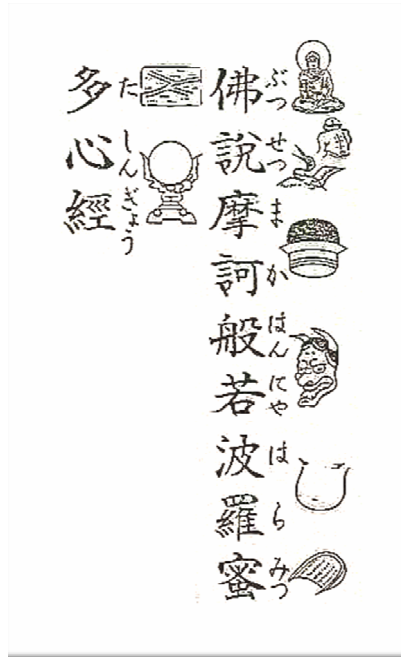 佛說摩訶般若波羅蜜
ぶつせつまかはんにやはらみつ
多心經
たしんぎょう